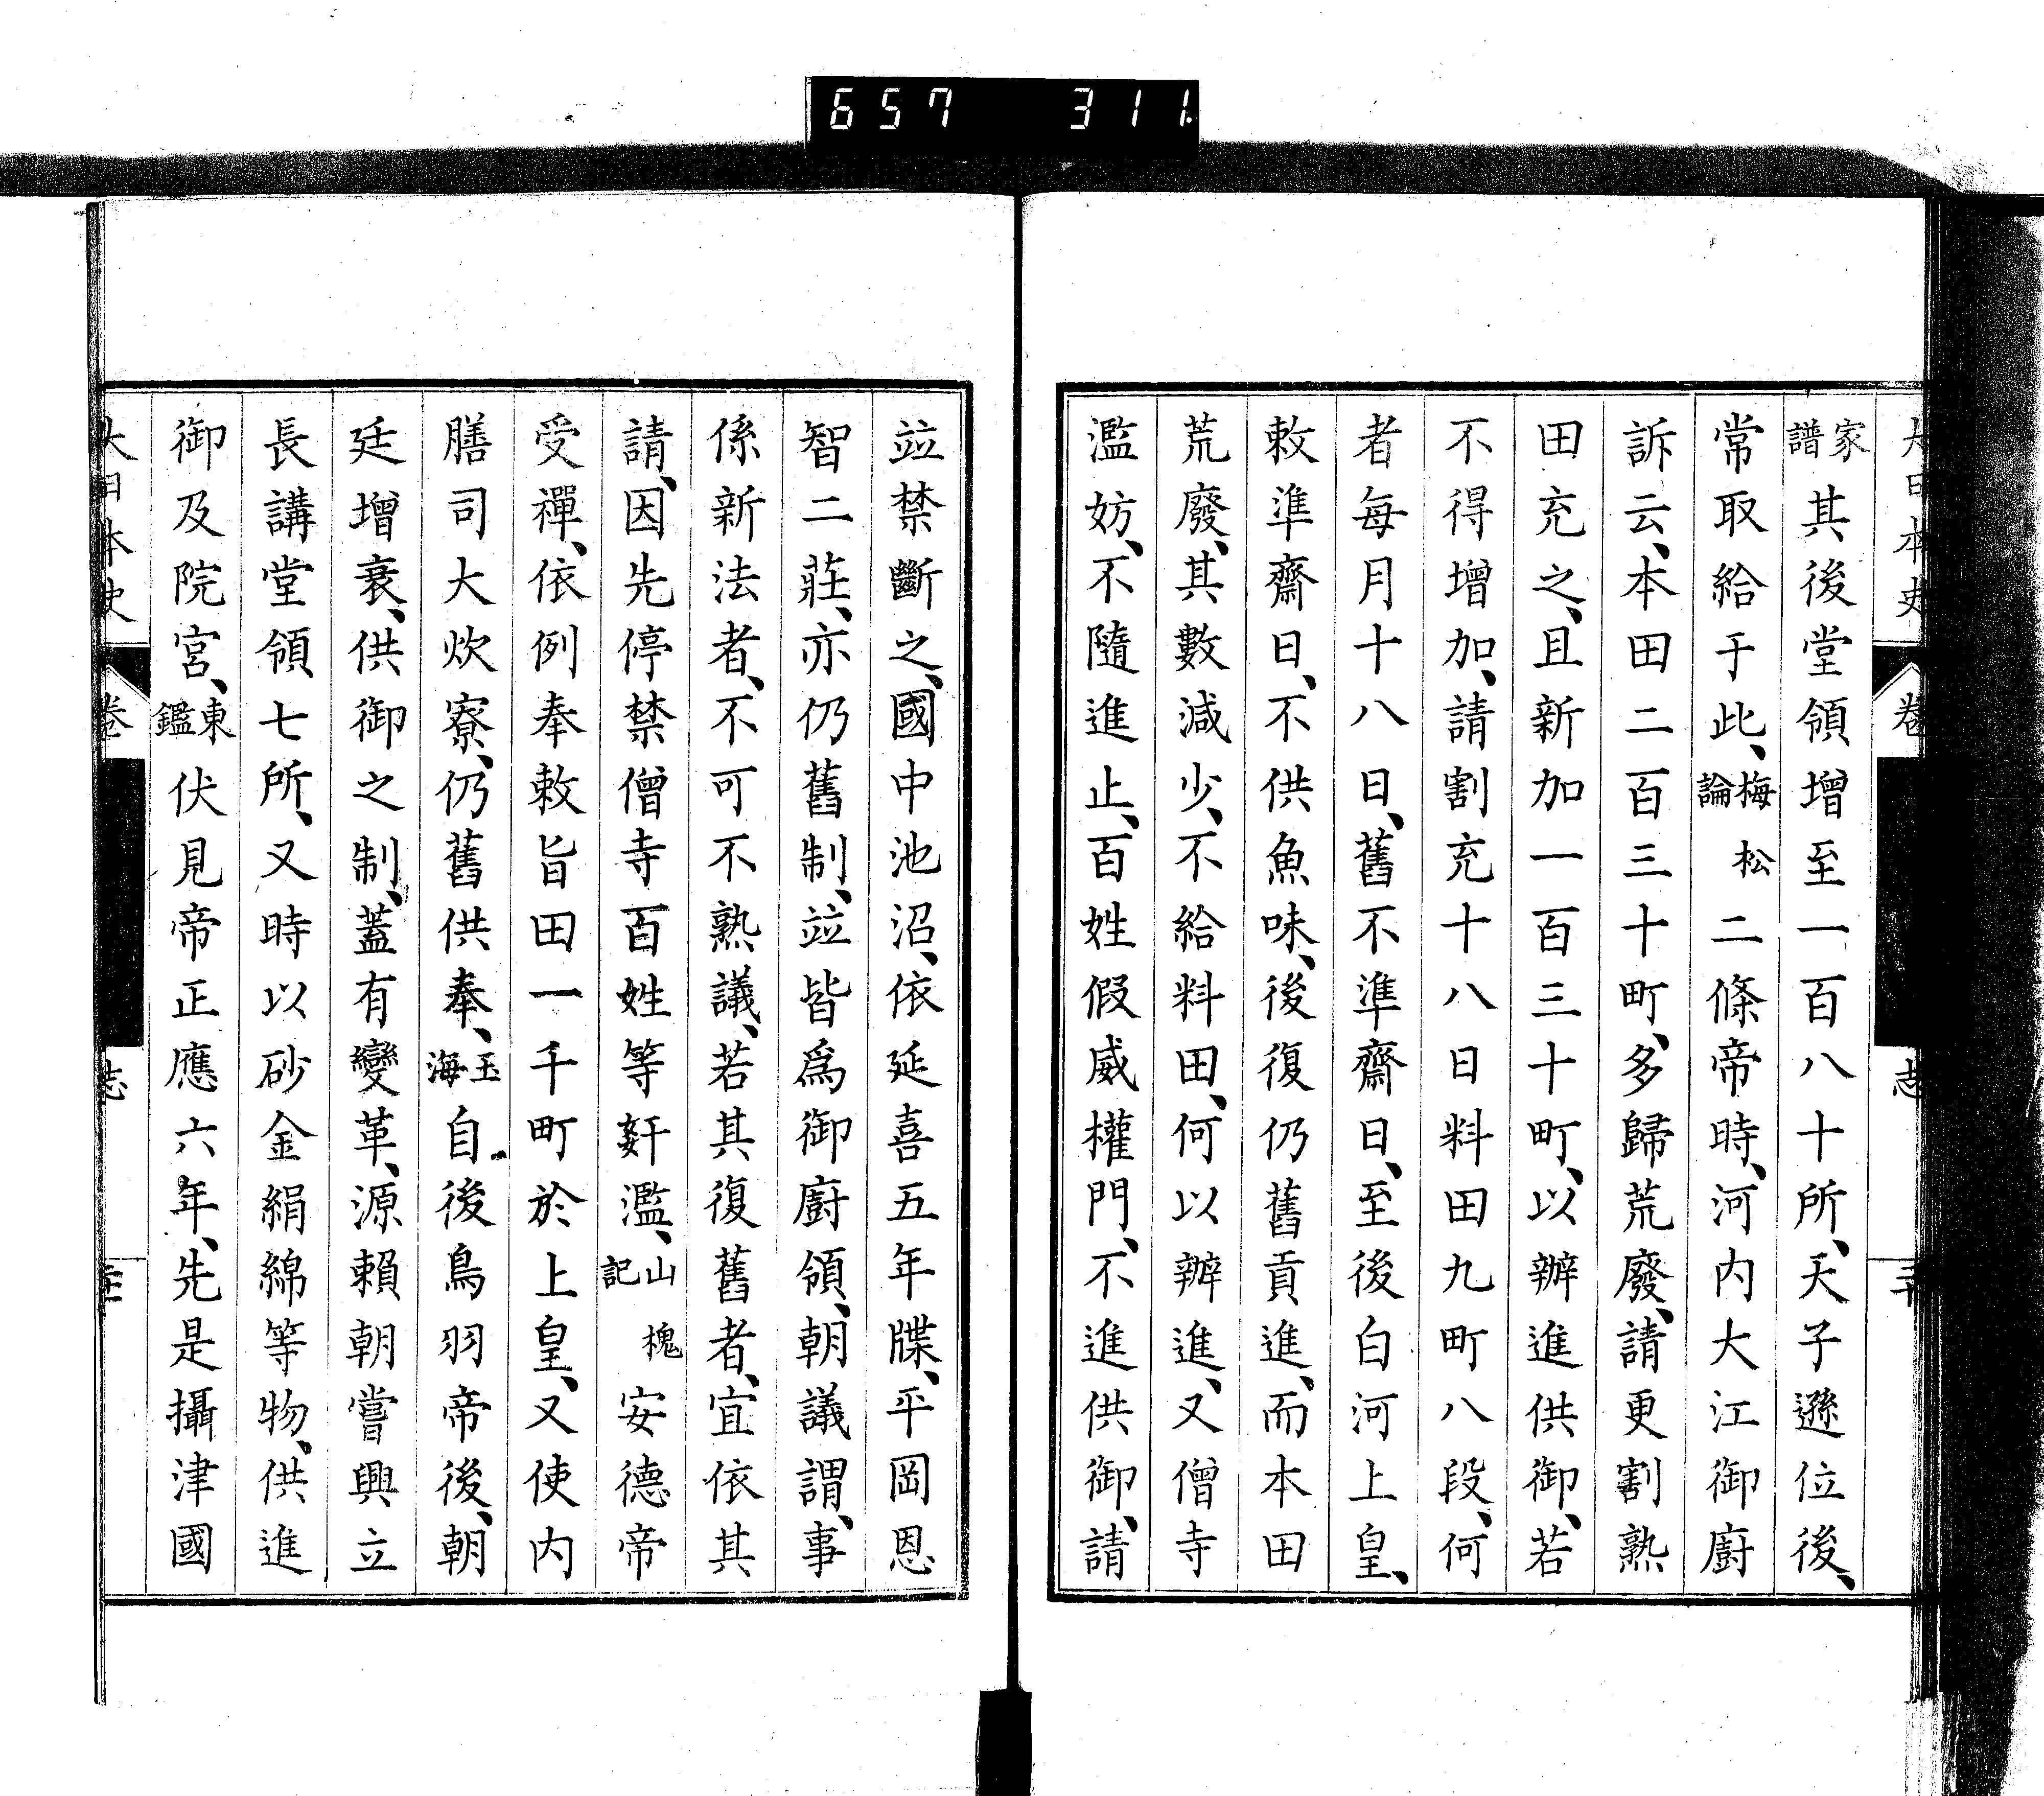 657 311.
大日本史 卷 志 三十
家譜其後堂領增至一百八十所、天子遜位後、
常取給于此、梅松論二條帝時、河内大江御廚
訴云、本田二百三十町、多歸荒廢、請更割熟
田充之、且新加一百三十町、以辦進供御、若
不得增加、請割充十八日料田九町八段、何
者每月十八日、舊不準齋日、至後白河上皇、
敕準齋日、不供魚味、後復仍舊貢進、而本田
荒廢、其數減少、不給料田、何以辦進、又僧寺
濫妨、不隨進止、百姓假威權門、不進供御、請
竝禁斷之、國中池沼、依延喜五年牒、平岡恩
智二莊、亦仍舊制、竝皆爲御廚領、朝議謂、事
係新法者、不可不熟議、若其復舊者、宜依其
請、因先停禁僧寺百姓等姧濫、山槐記安德帝
受禪、依例奉敕旨田一千町於上皇、又使内
膳司大炊寮、仍舊供奉、玉海自後鳥羽帝後、朝
廷增衰、供御之制、蓋有變革、源賴朝嘗興立
長講堂領七所、又時以砂金絹綿等物、供進
御及院宮、東鑑伏見帝正應六年、先是攝津國
大日本史 卷 志